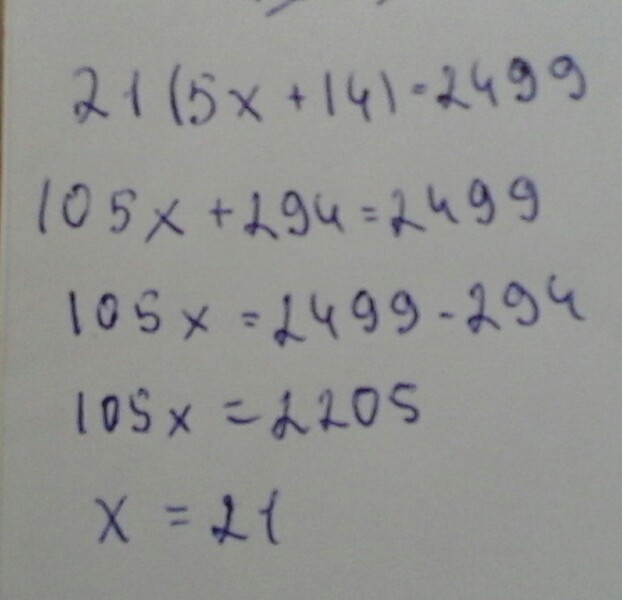 21(5x+14)=2499
105x+294=2499
105x=2499-294
105x=2205
x=21